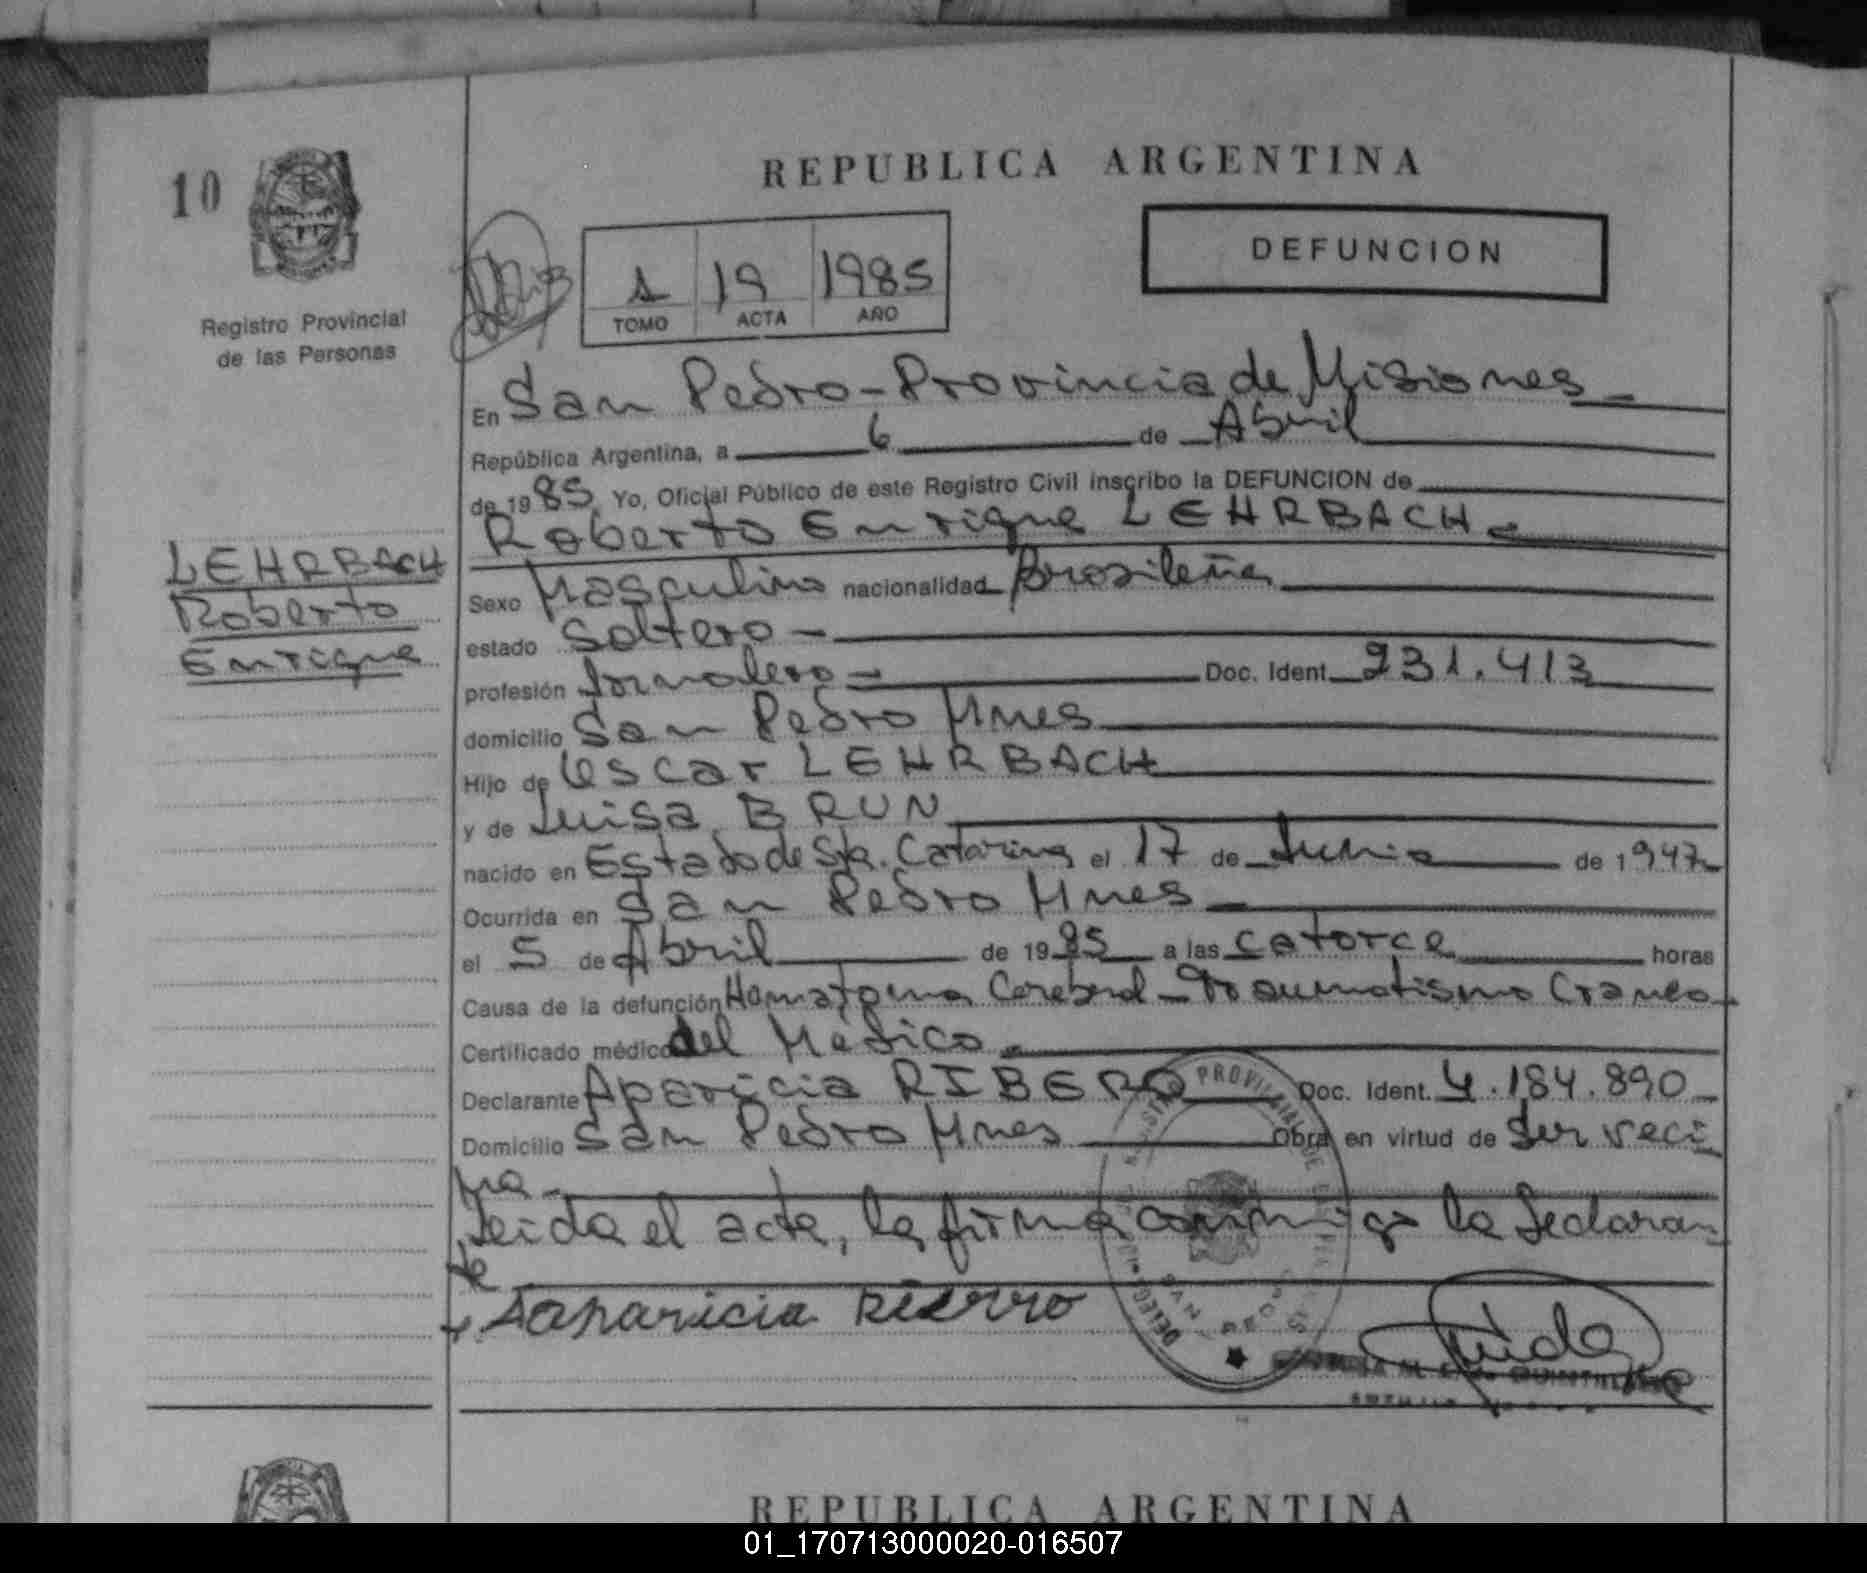 REPUBLICA ARGENTINA
10
Registro Provincial
de las Personas
1 19 1985
TOMO ACTA AÑO
DEFUNCION
En San Pedro - Provincia de Misiones
República Argentina, a 6 de Abril
de 1985, Yo, Oficial Público de este Registro Civil inscribo la DEFUNCION de
Roberto Enrique LEHRBACH
LEHRBACH
Roberto
Enrique
Sexo Masculino nacionalidad Brasileña
estado Soltero -
profesión Jornalero - Doc. Ident. 931.413
domicilio San Pedro Mnes
Hijo de Oscar LEHRBACH
y de Luisa BRUN
nacido en Estado de Sta. Catarina el 17 de Junio de 1947
Ocurrida en San Pedro Mnes -
el 5 de Abril de 1985 a las catorce horas
Causa de la defunción Hematoma Cerebral - Traumatismo Craneo
Certificado médico del Médico
Declarante Aparicia RIBERO Doc. Ident. 4.184.890
Domicilio San Pedro Mnes Obra en virtud de Ser veci
na -
Leida el acta, la firma conmigo la declaran
te
DELEGACION SAN PEDRO
REPUBLICA ARGENTINA
01_170713000020-016507